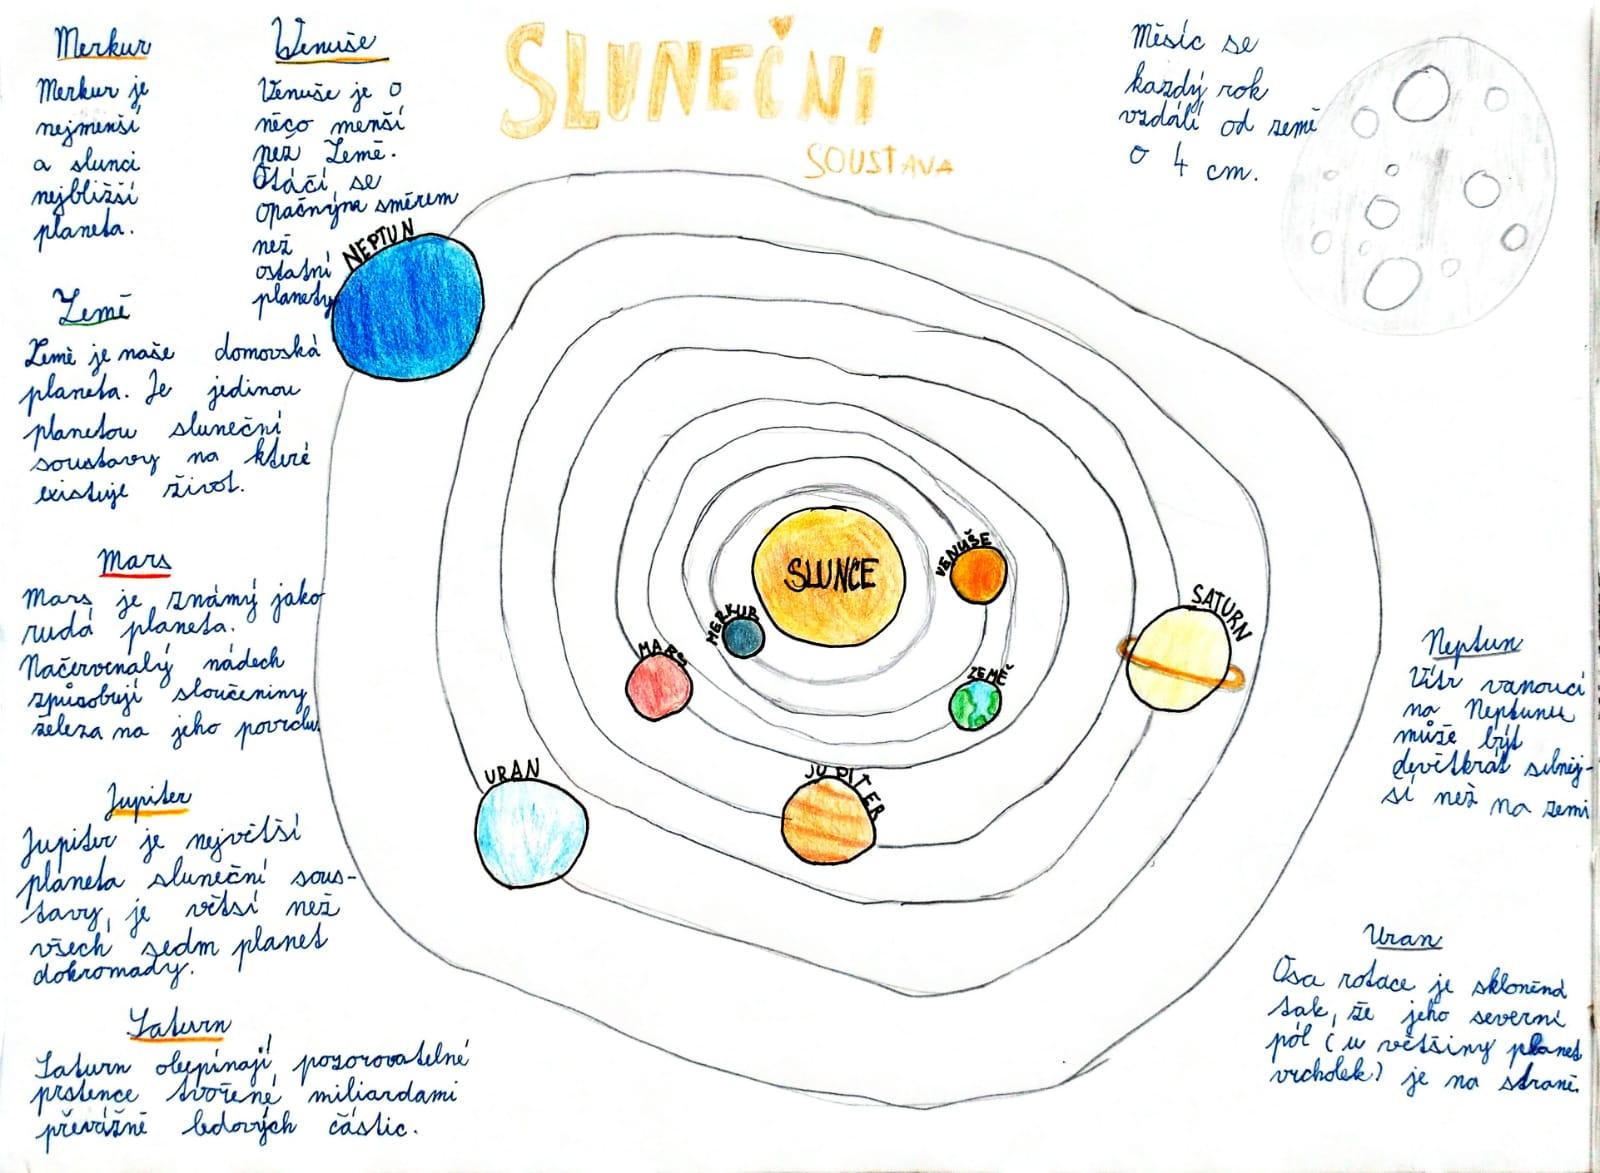 SLUNEČNÍ
SOUSTAVA
Merkur
Merkur je
nejmenší
a slunci
nejbližší
planeta.
Venuše
Venuše je o
něco menší
než Země.
Otáčí se
opačným směrem
než
ostatní
planety
Země
Země je naše domovská
planeta. Je jedinou
planetou sluneční
soustavy na které
existuje život.
Mars
Mars je známý jako
rudá planeta.
Načervenalý nádech
způsobují sloučeniny
železa na jeho povrchu.
Jupiter
Jupiter je největší
planeta sluneční sous-
tavy, je větší než
všech sedm planet
dohromady.
Saturn
Saturn obepínají pozorovatelné
prstence tvořené miliardami
převážně ledových částic.
Měsíc se
každý rok
vzdálí od země
o 4 cm.
NEPTUN
SLUNCE
VENUŠE
MERKUR
MARS
ZEMĚ
SATURN
URAN
JUPITER
Neptun
Vítr vanoucí
na Neptunu
může být
devětkrát silněj-
ší než na zemi
Uran
Osa rotace je skloněná
tak, že jeho severní
pól (u většiny planet
vrcholek) je na straně.